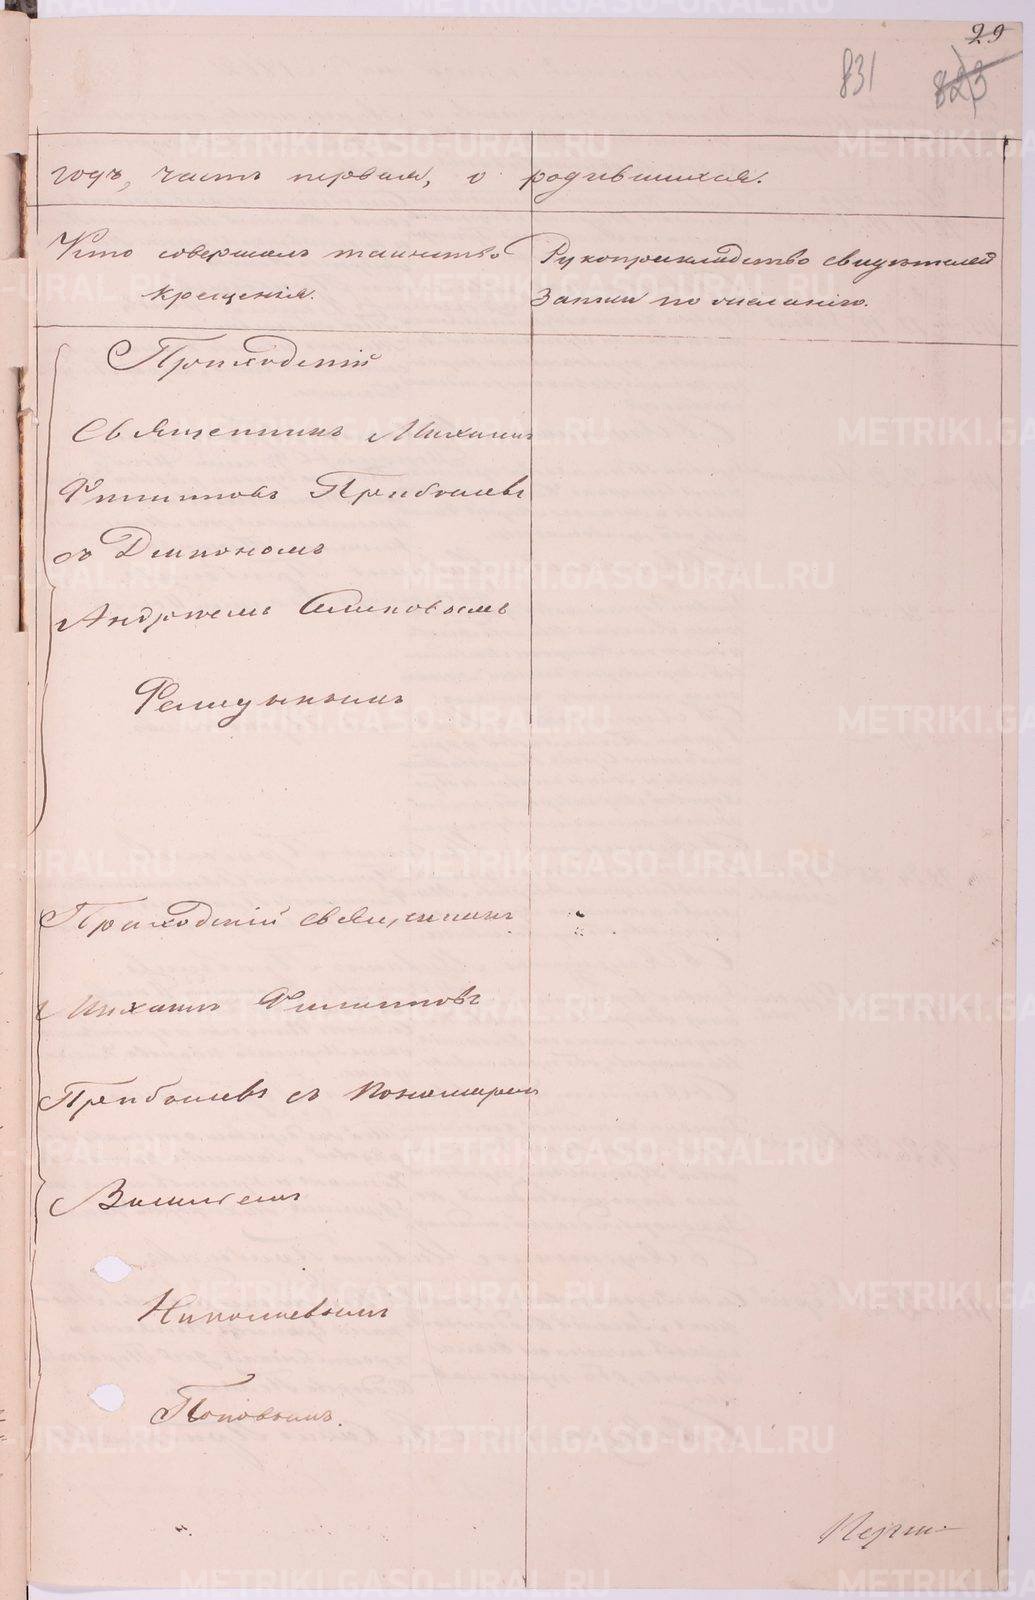 29
831
823
годъ, часть первая, о родившихся.
Кто совершалъ таинство
крещенія.
Рукоприкладство свидѣтелей
записи по желанію.
Приходскій
Священникъ Михаилъ
Филипповъ Прибылевъ
съ Діакономъ
Андреемъ
Приходскій священникъ
Михаилъ Филипповъ
Прибылевъ съ Пономаремъ
Василіемъ
Николаевымъ
Поповымъ.
METRIKI.GASO-URAL.RU